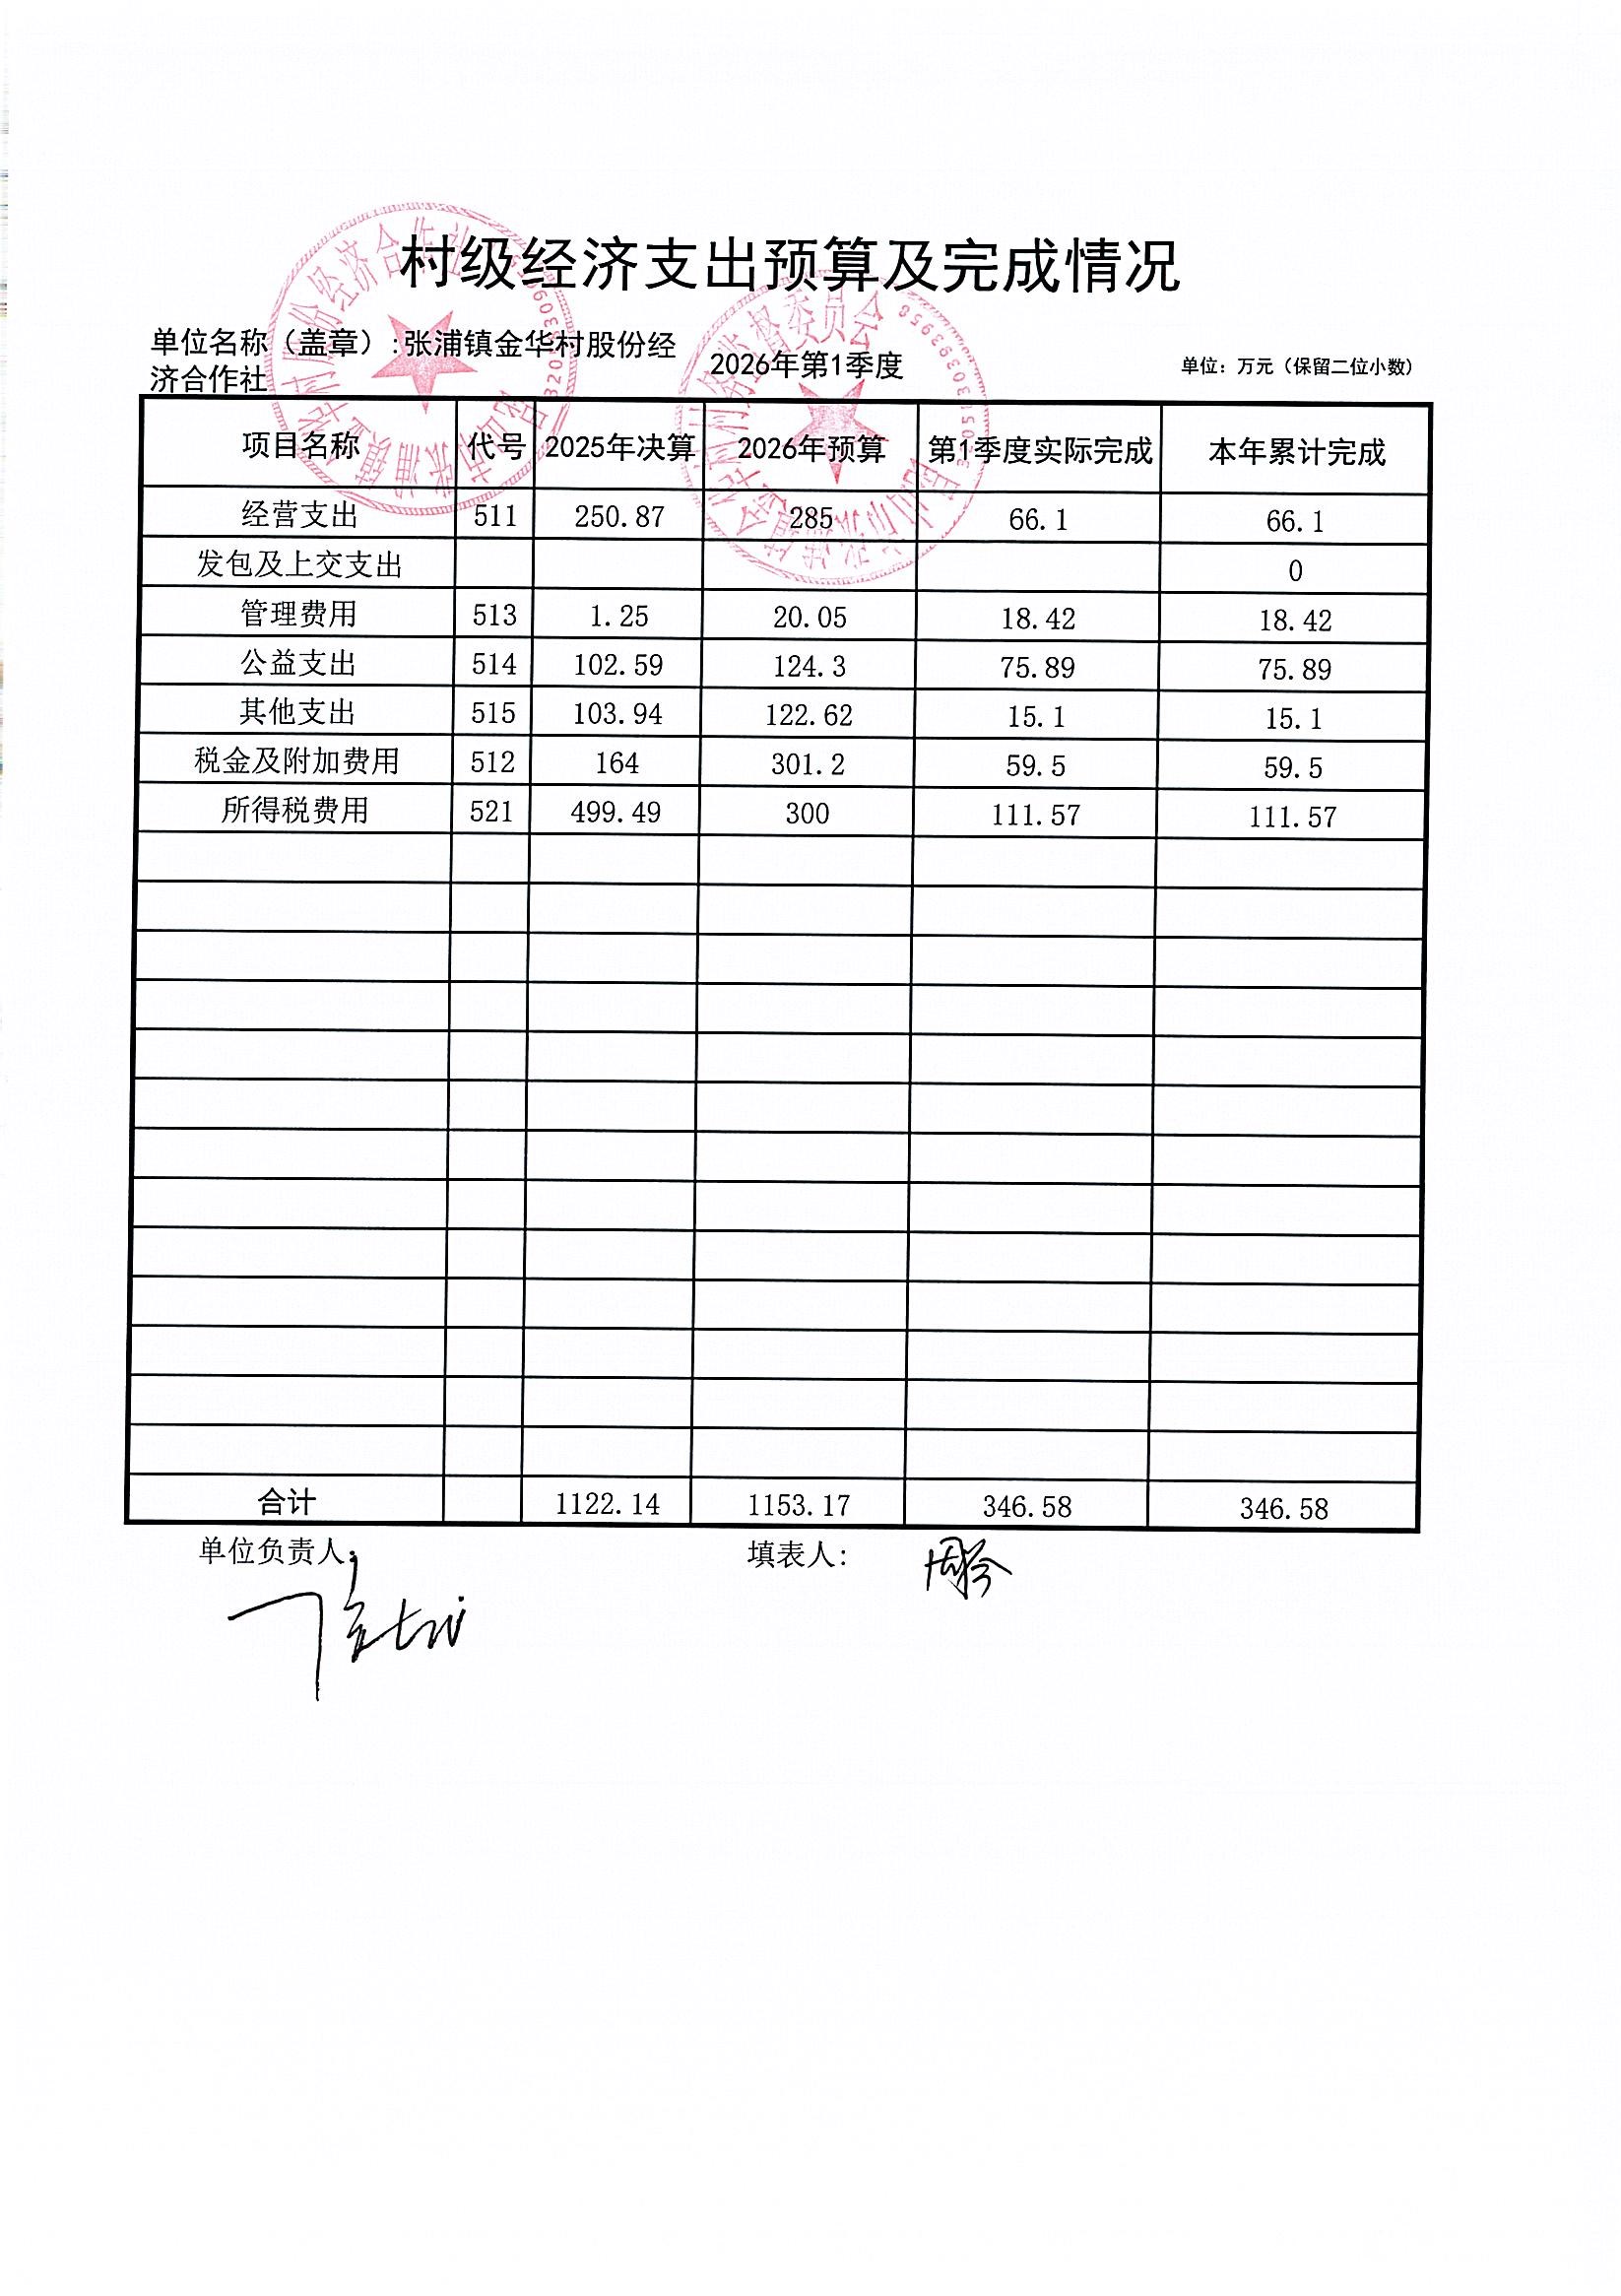 村级经济支出预算及完成情况
单位名称（盖章）:张浦镇金华村股份经
济合作社
2026年第1季度
单位：万元（保留二位小数）
项目名称 代号 2025年决算 2026年预算 第1季度实际完成 本年累计完成
经营支出 511 250.87 285 66.1 66.1
发包及上交支出 0
管理费用 513 1.25 20.05 18.42 18.42
公益支出 514 102.59 124.3 75.89 75.89
其他支出 515 103.94 122.62 15.1 15.1
税金及附加费用 512 164 301.2 59.5 59.5
所得税费用 521 499.49 300 111.57 111.57
合计 1122.14 1153.17 346.58 346.58
单位负责人:
填表人: